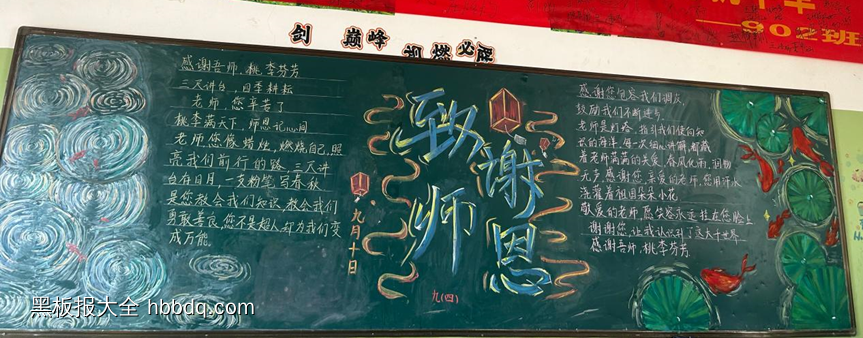 剑 巅峰
902班
感谢吾师,桃李芬芳
三尺讲台,四季耕耘
老师,您辛苦了
桃李满天下,师恩记心间
老师您像蜡烛,燃烧自己,照
亮我们前行的路 三尺讲
台有日月,一支粉笔写春秋
是您教会我们知识,教会我们
勇敢善良,您不是超人,却为我们变
成万能。
九月十日
致师
谢恩
九(四)
感谢您包容我们调皮,
鼓励我们不断进步,
老师是灯塔,指引我们驶向知
识的海洋,每一次细心讲解,都藏
着老师满满的关爱 春风化雨,润物
无声 感谢您,亲爱的老师,您用汗水
浇灌着祖国朵朵小花
敬爱的老师,愿笑容永远挂在您脸上
谢谢您,让我认识到了这大千世界
感谢吾师,桃李芬芳
黑板报大全 hbbdq.com